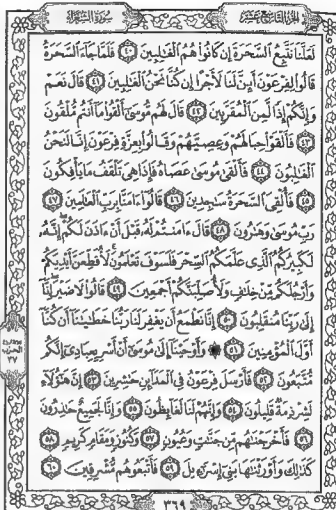 الجزء التاسع عشر
سورة الشعراء
لَعَلَّنَا نَتَّبِعُ السَّحَرَةَ إِن كَانُوا هُمُ الْغَالِبِينَ ٤٠ فَلَمَّا جَاءَ السَّحَرَةُ
قَالُوا لِفِرْعَوْنَ أَئِنَّ لَنَا لَأَجْرًا إِن كُنَّا نَحْنُ الْغَالِبِينَ ٤١ قَالَ نَعَمْ
وَإِنَّكُمْ إِذًا لَّمِنَ الْمُقَرَّبِينَ ٤٢ قَالَ لَهُم مُّوسَىٰ أَلْقُوا مَا أَنتُم مُّلْقُونَ
٤٣ فَأَلْقَوْا حِبَالَهُمْ وَعِصِيَّهُمْ وَقَالُوا بِعِزَّةِ فِرْعَوْنَ إِنَّا لَنَحْنُ
الْغَالِبُونَ ٤٤ فَأَلْقَىٰ مُوسَىٰ عَصَاهُ فَإِذَا هِيَ تَلْقَفُ مَا يَأْفِكُونَ
٤٥ فَأُلْقِيَ السَّحَرَةُ سَاجِدِينَ ٤٦ قَالُوا آمَنَّا بِرَبِّ الْعَالَمِينَ ٤٧
رَبِّ مُوسَىٰ وَهَارُونَ ٤٨ قَالَ آمَنتُمْ لَهُ قَبْلَ أَنْ آذَنَ لَكُمْ إِنَّهُ
لَكَبِيرُكُمُ الَّذِي عَلَّمَكُمُ السِّحْرَ فَلَسَوْفَ تَعْلَمُونَ لَأُقَطِّعَنَّ أَيْدِيَكُمْ
وَأَرْجُلَكُم مِّنْ خِلَافٍ وَلَأُصَلِّبَنَّكُمْ أَجْمَعِينَ ٤٩ قَالُوا لَا ضَيْرَ إِنَّا
إِلَىٰ رَبِّنَا مُنقَلِبُونَ ٥٠ إِنَّا نَطْمَعُ أَن يَغْفِرَ لَنَا رَبُّنَا خَطَايَانَا أَن كُنَّا
أَوَّلَ الْمُؤْمِنِينَ ٥١ وَأَوْحَيْنَا إِلَىٰ مُوسَىٰ أَنْ أَسْرِ بِعِبَادِي إِنَّكُم
مُّتَّبَعُونَ ٥٢ فَأَرْسَلَ فِرْعَوْنُ فِي الْمَدَائِنِ حَاشِرِينَ ٥٣ إِنَّ هَٰؤُلَاءِ
لَشِرْذِمَةٌ قَلِيلُونَ ٥٤ وَإِنَّهُمْ لَنَا لَغَائِظُونَ ٥٥ وَإِنَّا لَجَمِيعٌ حَاذِرُونَ
٥٦ فَأَخْرَجْنَاهُم مِّن جَنَّاتٍ وَعُيُونٍ ٥٧ وَكُنُوزٍ وَمَقَامٍ كَرِيمٍ ٥٨
كَذَٰلِكَ وَأَوْرَثْنَاهَا بَنِي إِسْرَائِيلَ ٥٩ فَأَتْبَعُوهُم مُّشْرِقِينَ ٦٠
٣٦٩